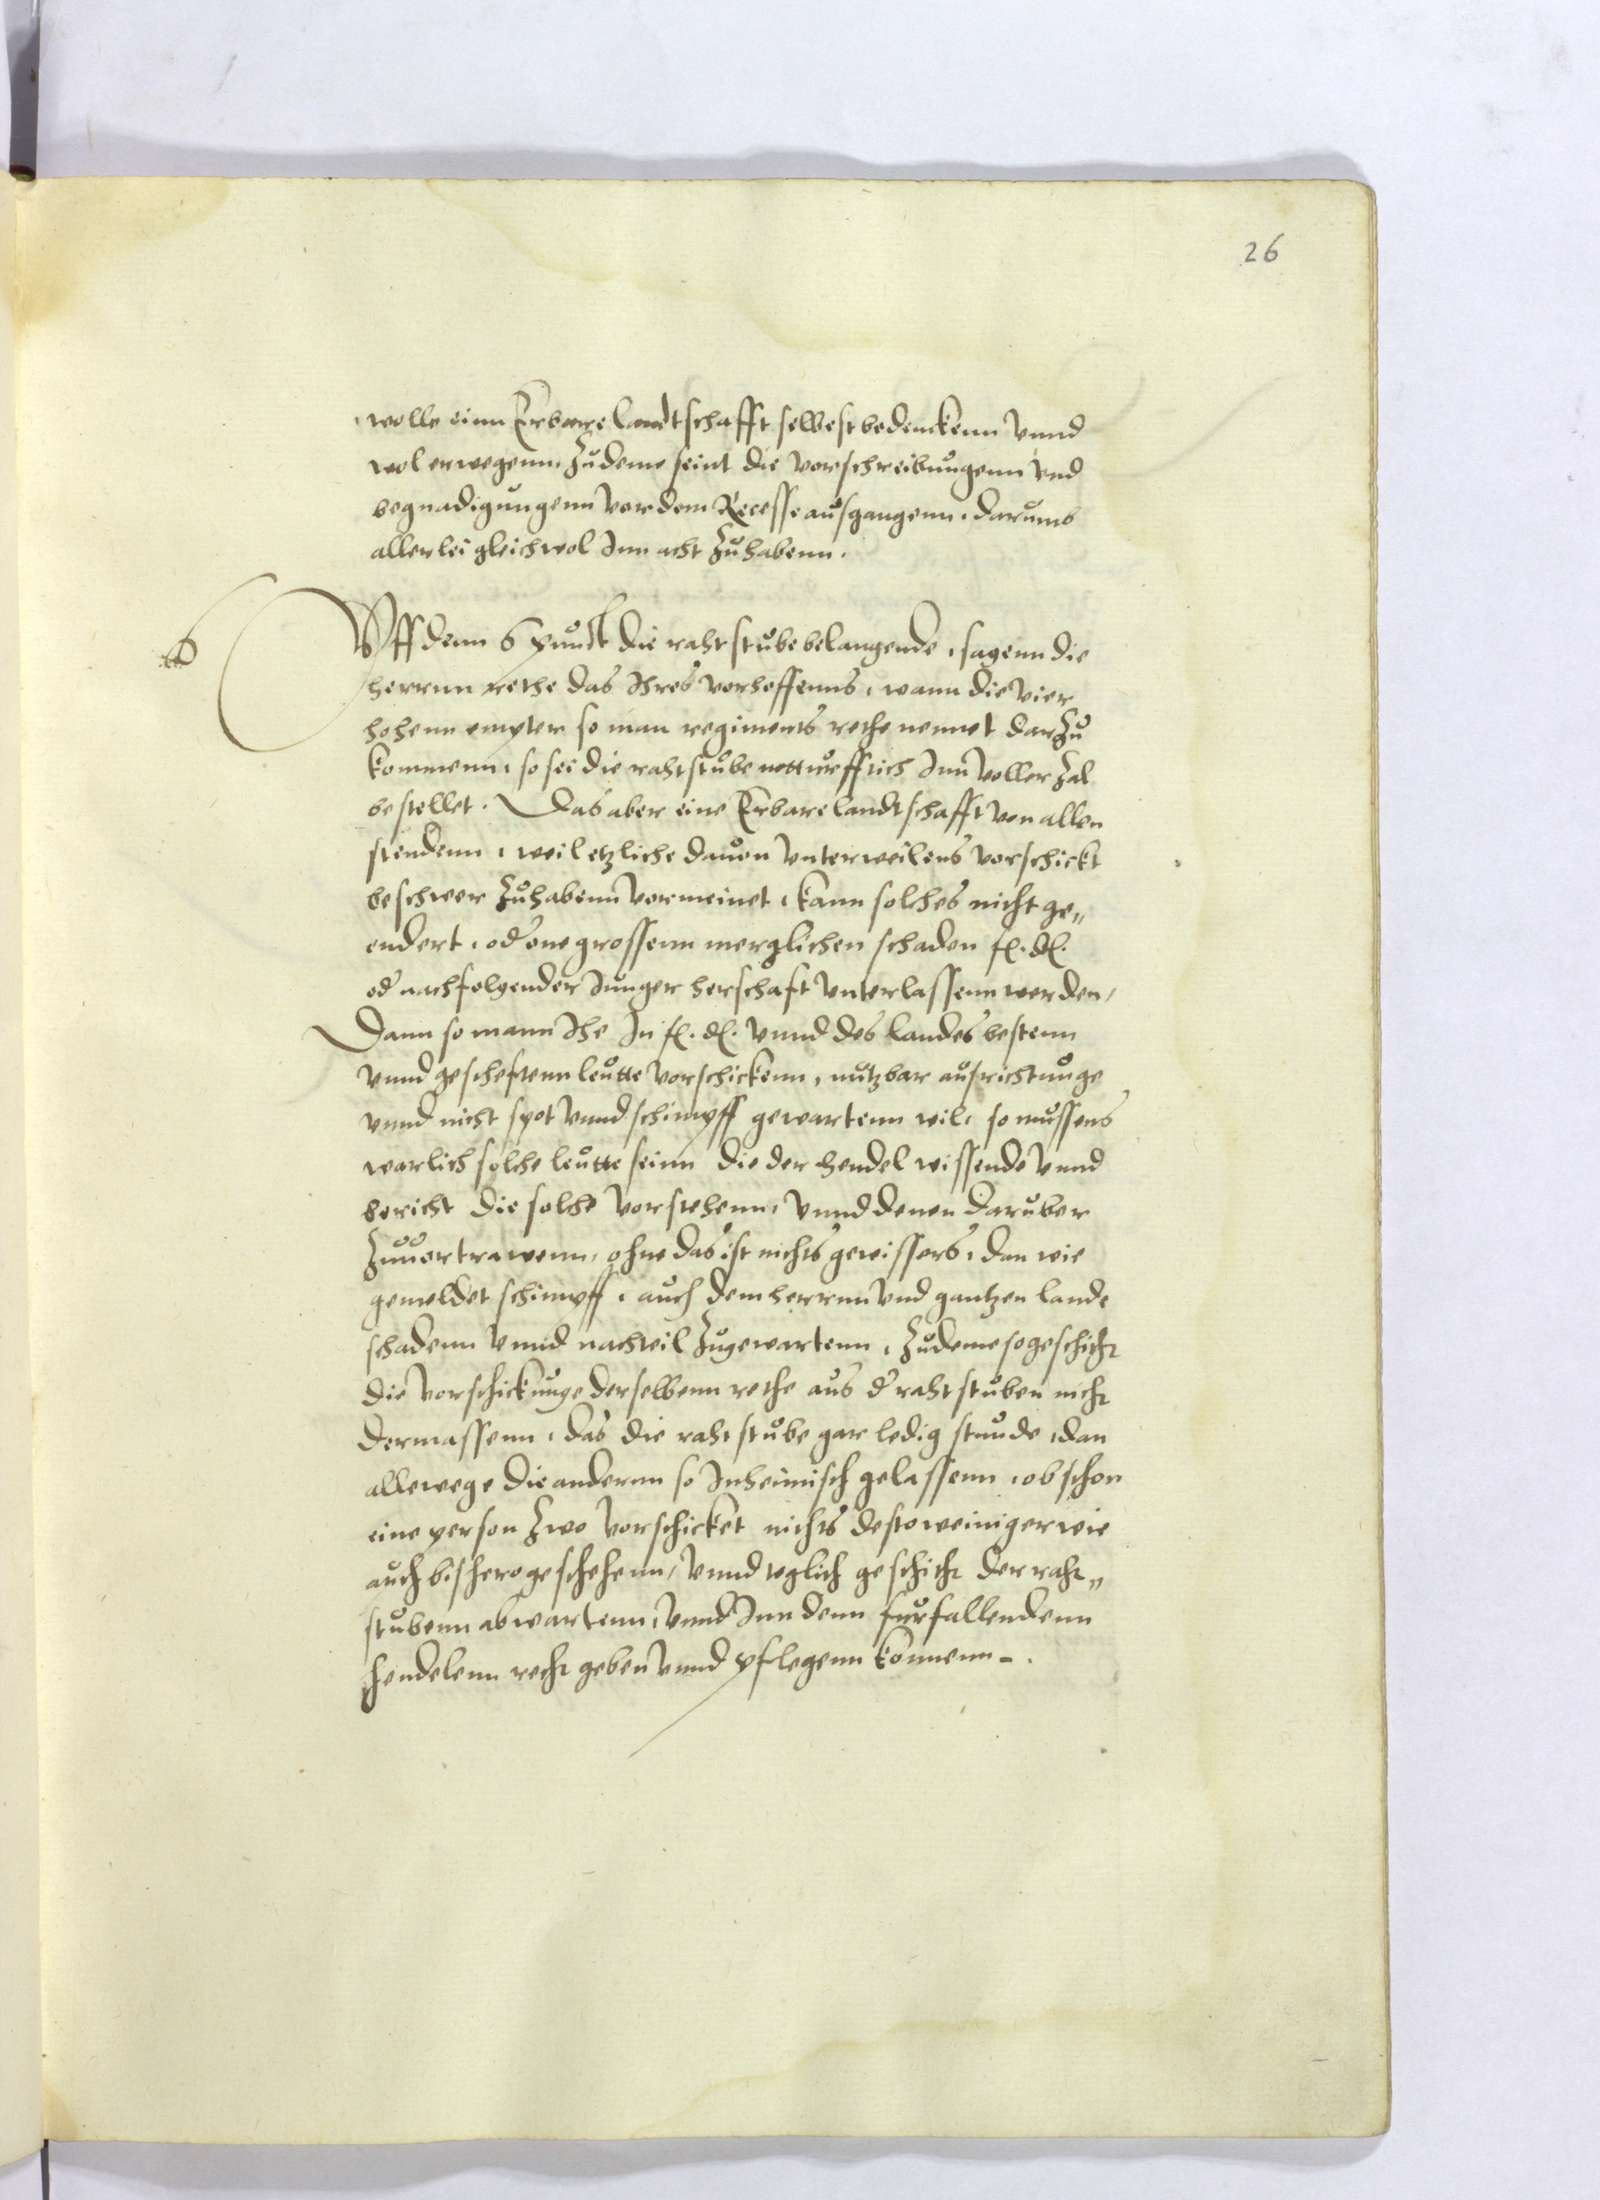 26
wolle einn Erbare landtschafft selbest bedenckenn vnnd
wol erwegenn, Zudeme seint die vorschreibungenn vnd
begnadigungenn vor dem Recesse ausgangenn, darumb
allerlei gleichwol Inn acht Zuhabenn.
6
Vff denn 6 punckt die rahtstube belangende, sagenn die
herrnn rethe das Ihres vorhoffenns, wann die vier
hohenn empter so man regiments rethe nennet darzu
kommenn, so sei die rahtstube notturfftich Inn voller Zal
bestellet. Das aber eine Erbare landtschafft von allen
stendenn, weil etzliche dauon vnterweilens vorschickt
beschwer Zuhabenn vormeinet, kann solches nicht ge„
endert, od' one grossenn merglichen schaden f. d.
od' nachfolgender Junger herschaft vnterlassenn werden,
Dann so mann Ihe In f. d. vnnd des landes bestenn
vnnd gescheftenn leutte vorschickenn, nutzbar ausrichtunge
vnnd nicht spot vnnd schimpff gewartenn wil, so mussens
warlich solche leutte seinn die der hendel wissende vnnd
bericht die solche vorstehenn, vnnd denen daruber
Zuuortrawenn, ohne das ist nichts gewissers, dan wie
gemeldet schimpff, auch dem herrnn vnd gantzen lande
schadenn vnnd nachteil Zugewartenn, Zudeme so geschicht
die vorschickunge derselbenn rethe aus d' rahtstuben nicht
dermassenn, das die rahtstube gar ledig stunde, dan
allewege die andernn so Inheimisch gelassenn, ob schon
eine person Zwo vorschicket nichts destoweiniger wie
auch bishero geschehenn, vnnd teglich geschicht der raht„
stubenn abwartenn, vnnd Inn denn furfallendenn
hendelenn recht geben vnnd pflegenn konnenn.